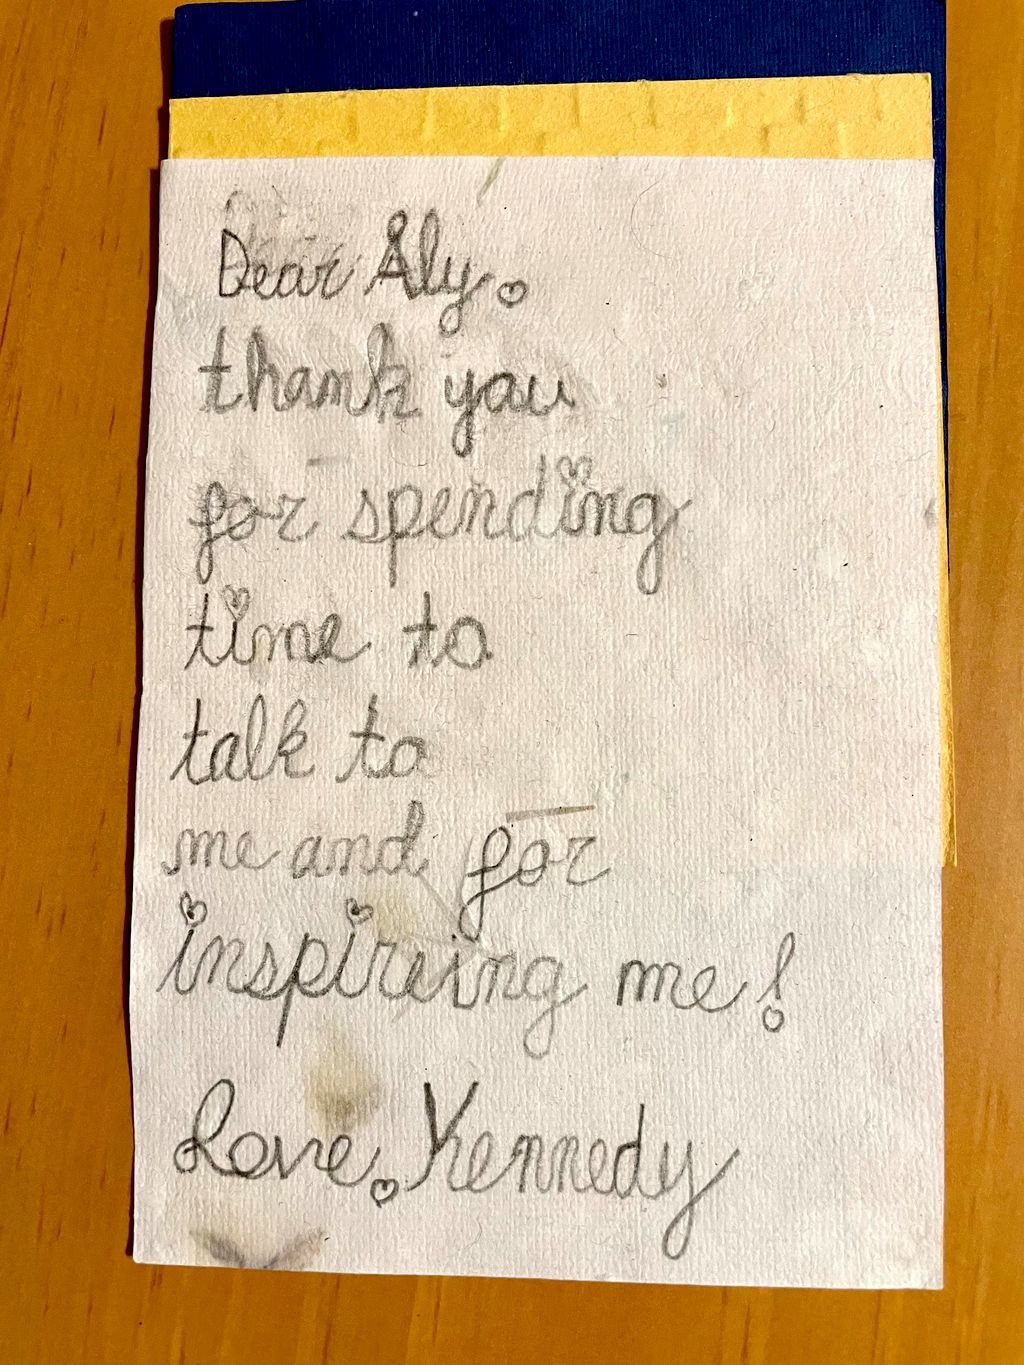 Dear Aly,
thank you
for spending
time to
talk to
me and for
inspireing me!
Love, Kennedy